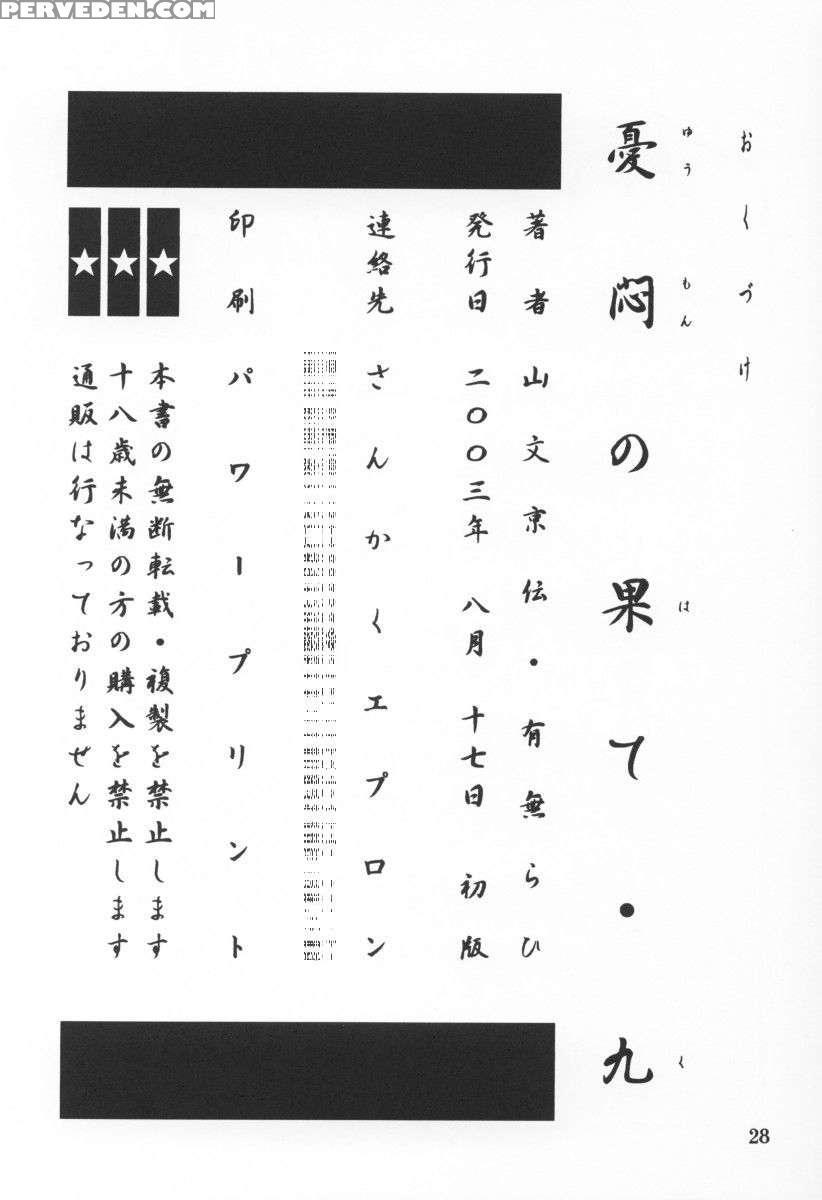 PERVEDEN.COM
おくづけ
憂悶の果て・九
ゆうもん は く
著者 山文京伝・有無らひ
発行日 二〇〇三年 八月 十七日 初版
連絡先 さんかくエプロン
印刷 パワープリント
★ 本書の無断転載・複製を禁止します
★ 十八歳未満の方の購入を禁止します
★ 通販は行なっておりません
28